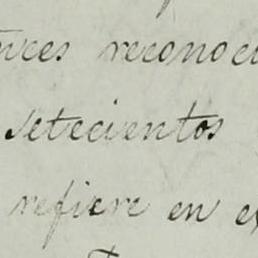 nces reconoci
setecientos
refiere en ex